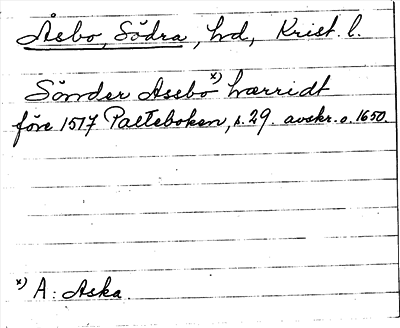 Åsbo, Södra, hd, Krist. l.
Sönder Assbo x) hærridt
före 1517 Palteboken, s. 29. avskr. o. 1650.
x) A: Aska.